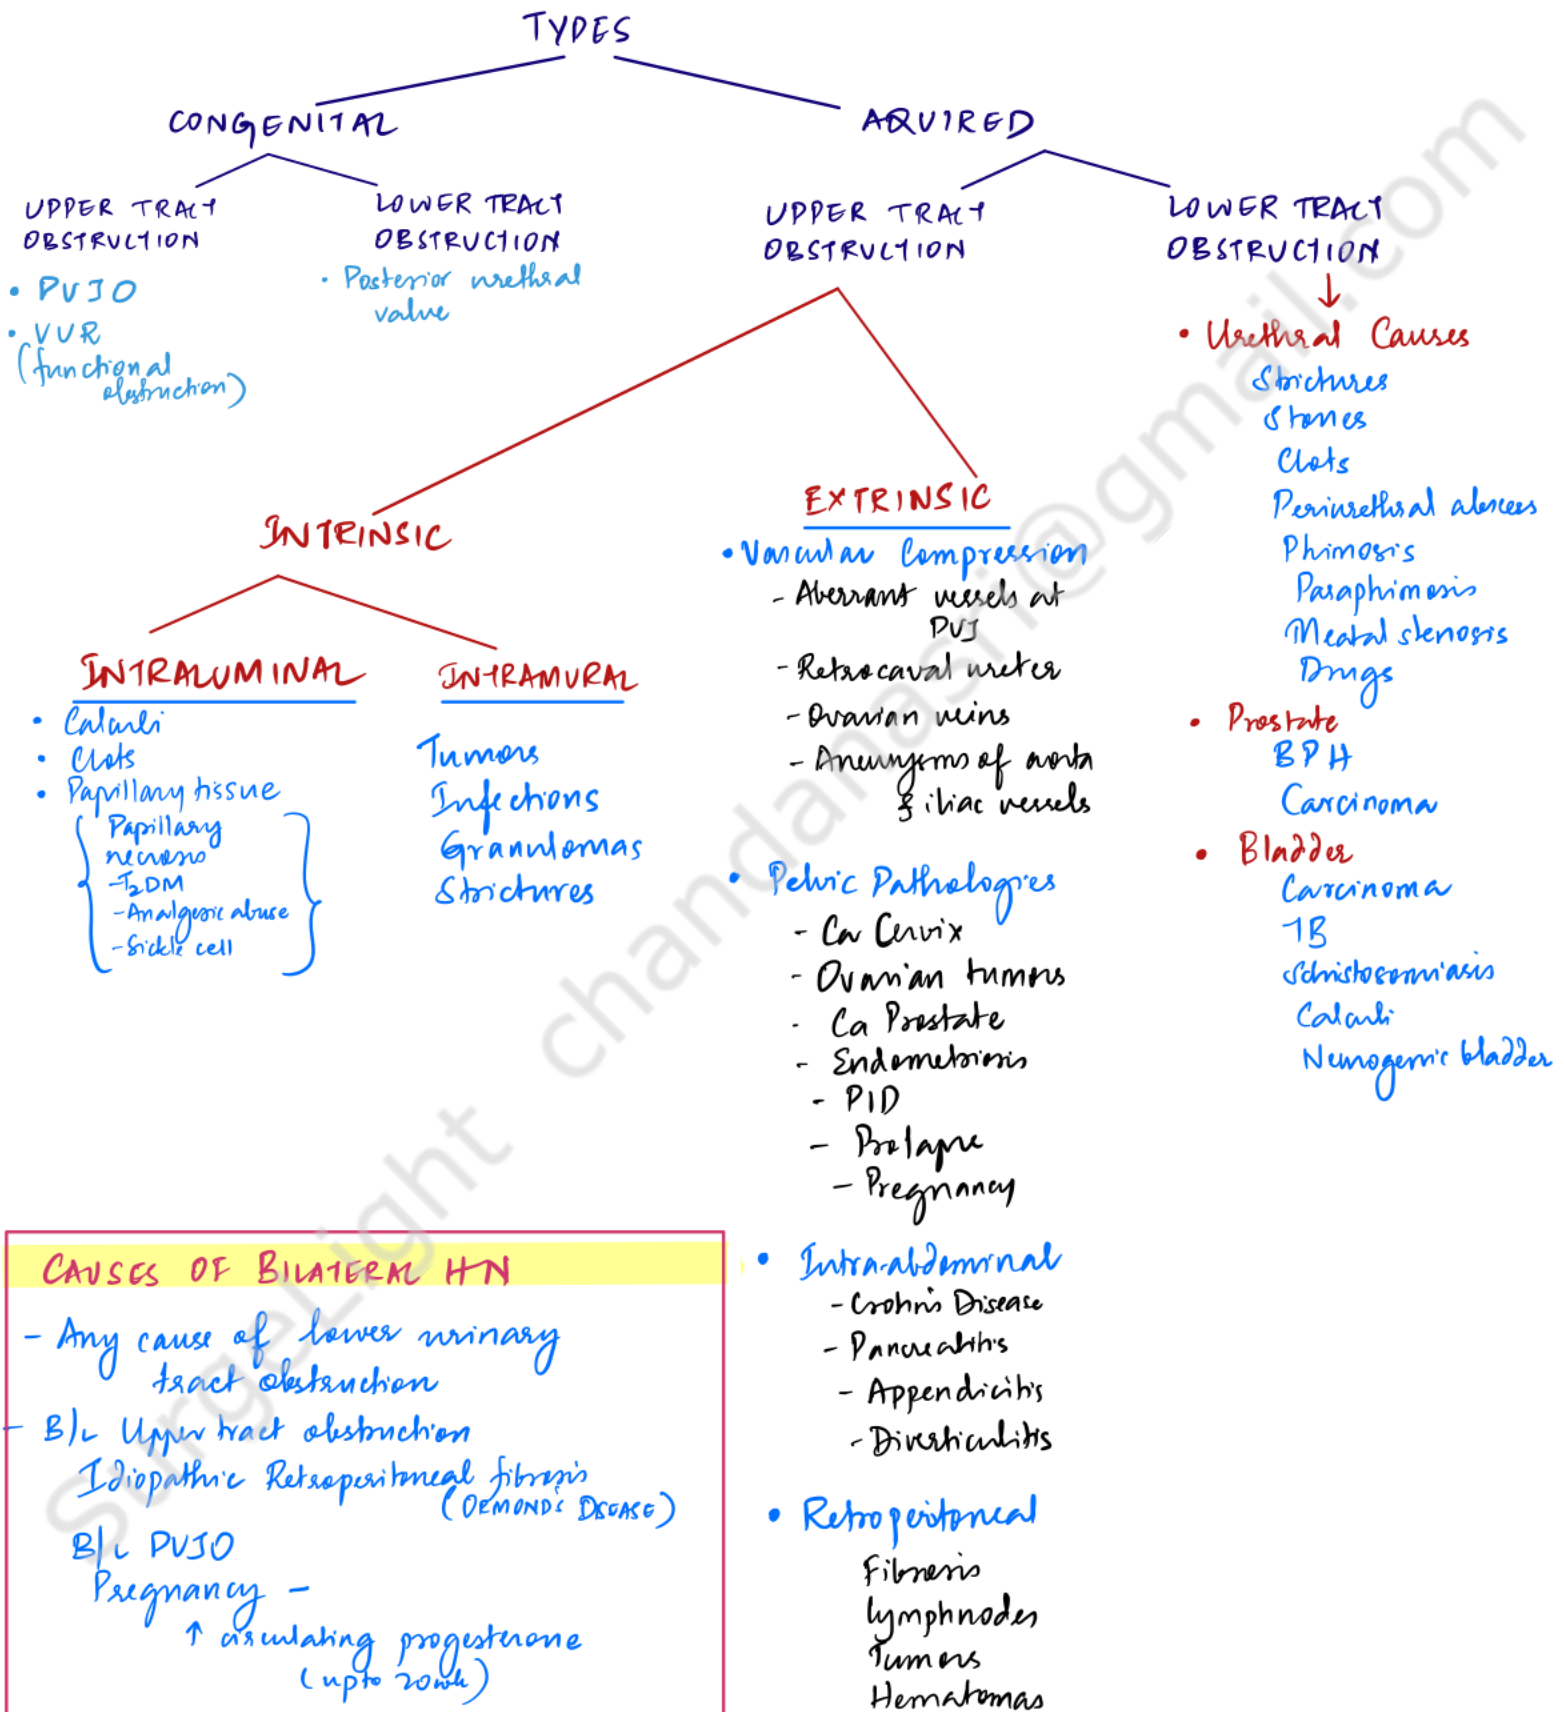 TYPES
CONGENITAL
UPPER TRACT
OBSTRUCTION
• PUJO
• VUR
(functional
obstruction)
LOWER TRACT
OBSTRUCTION
• Posterior urethral
value
AQUIRED
UPPER TRACT
OBSTRUCTION
INTRINSIC
INTRALUMINAL
• Calculi
• Clots
• Papillary tissue
Papillary
necrosis
-T2DM
-Analgesic abuse
-Sickle cell
INTRAMURAL
Tumors
Infections
Granulomas
Strictures
EXTRINSIC
• Vascular Compression
- Aberrant vessels at
PUJ
- Retrocaval ureter
- Ovarian veins
- Aneurysms of aorta
& iliac vessels
• Pelvic Pathologies
- Ca Cervix
- Ovarian tumors
- Ca Prostate
- Endometriosis
- PID
- Prolapse
- Pregnancy
• Intra-abdominal
- Crohn's Disease
- Pancreatitis
- Appendicitis
- Diverticulitis
• Retroperitoneal
Fibrosis
lymphnodes
Tumors
Hematomas
LOWER TRACT
OBSTRUCTION
↓
• Urethral Causes
Strictures
Stones
Clots
Periurethral abscess
Phimosis
Paraphimosis
Meatal stenosis
Drugs
• Prostate
BPH
Carcinoma
• Bladder
Carcinoma
TB
Schistosomiasis
Calculi
Neurogenic bladder
CAUSES OF BILATERAL HN
- Any cause of lower urinary
tract obstruction
- B/L Upper tract obstruction
Idiopathic Retroperitoneal fibrosis
(ORMOND'S DISEASE)
B/L PUJO
Pregnancy -
↑ circulating progesterone
(upto 20wk)
SurgeLight chandanasri@gmail.com